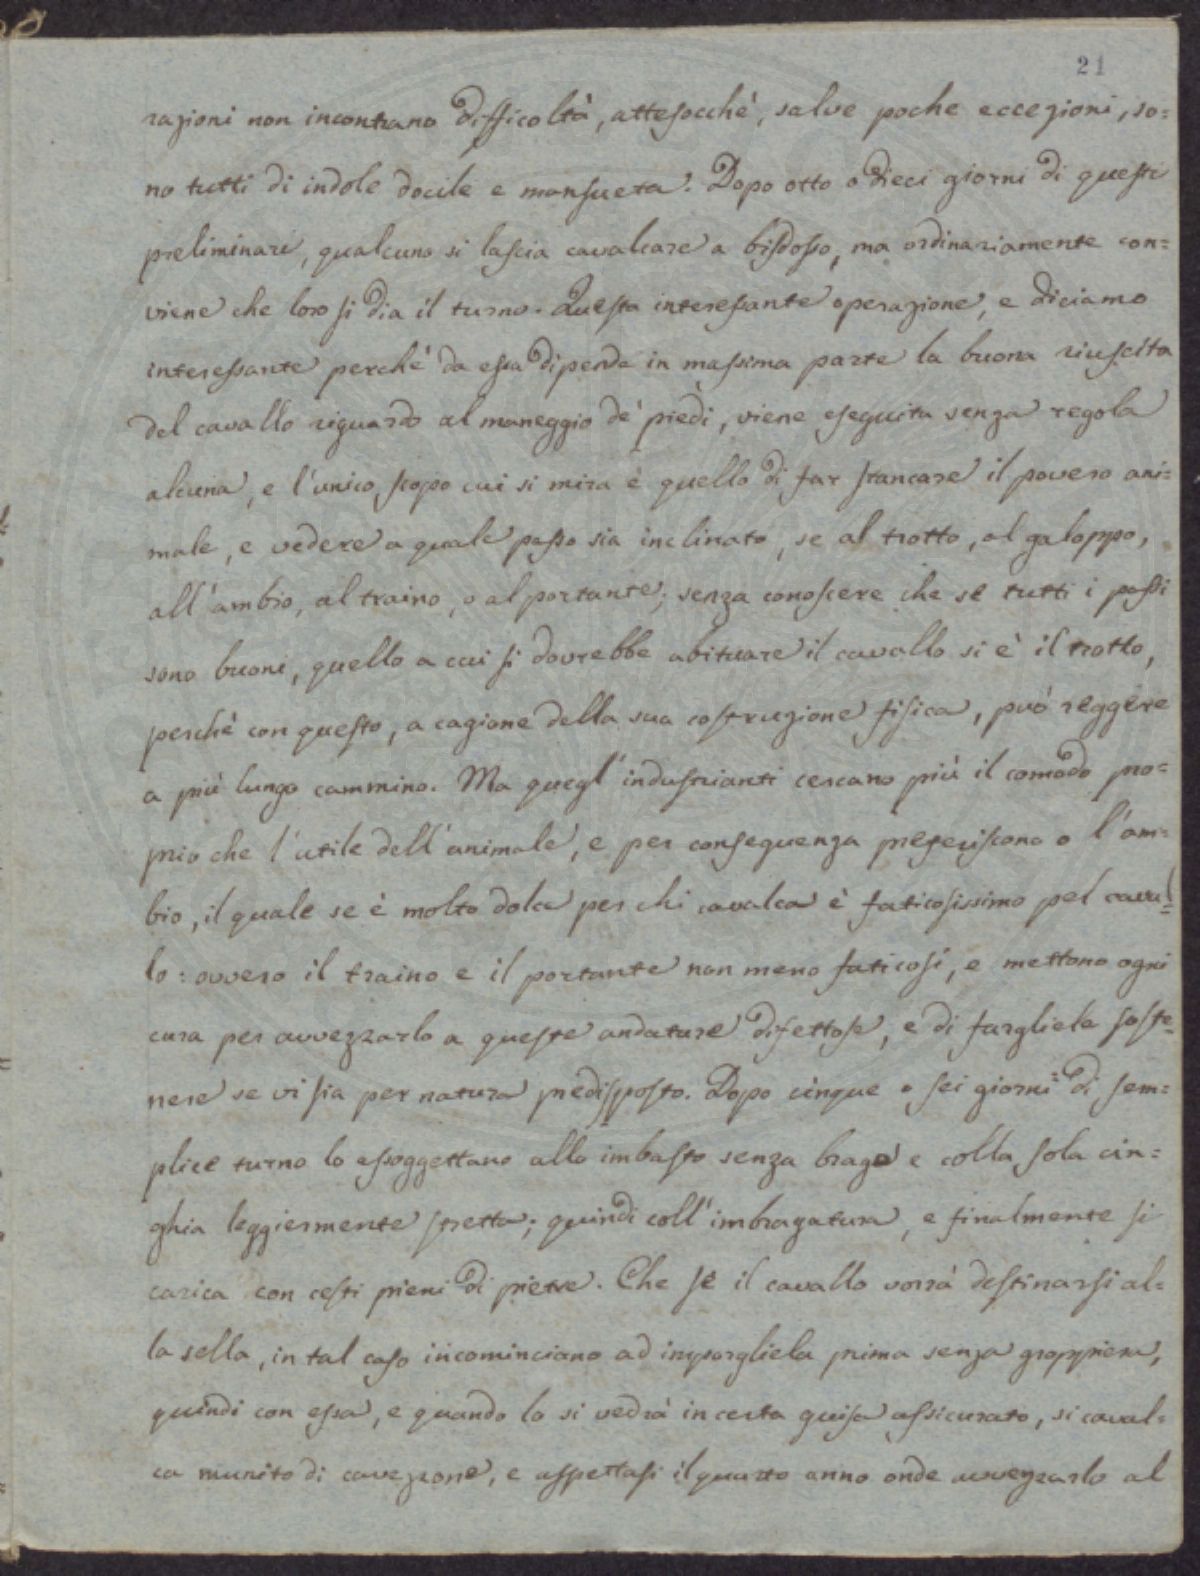 21
razioni non incontrano difficoltà, attesocchè, salve poche eccezioni, so=
no tutti di indole docile e mansueta. Dopo otto o dieci giorni di questi
preliminari, qualcuno si lascia cavalcare a bisdosso, ma ordinariamente con=
viene che loro si dia il turno. Questa interessante operazione, e diciamo
interessante perchè da essa dipende in massima parte la buona riuscita
del cavallo riguardo al maneggio de' piedi, viene eseguita senza regola
alcuna, e l'unico scopo cui si mira è quello di far stancare il povero ani=
male, e vedere a quale passo sia inclinato, se al trotto, al galoppo,
all'ambio, al traino, o al portante; senza conoscere che se tutti i passi
sono buoni, quello a cui si dovrebbe abituare il cavallo si è il trotto,
perchè con questo, a cagione della sua costruzione fisica, può reggere
a più lungo cammino. Ma quegl'industrianti cercano più il comodo pro=
prio che l'utile dell'animale, e per conseguenza preferiscono o l'am=
bio, il quale se è molto dolce per chi cavalca è faticosissimo pel caval=
lo: ovvero il traino e il portante non meno faticosi, e mettono ogni
cura per avvezzarlo a queste andature difettose, e di fargliele soste=
nere se vi sia per natura predisposto. Dopo cinque o sei giorni di sem=
plice turno lo assoggettano allo imbasto senza brage e colla sola cin=
ghia leggiermente stretta; quindi coll'imbragatura, e finalmente si
carica con cesti pieni di pietre. Che se il cavallo vorrà destinarsi al=
la sella, in tal caso incominciano ad imporgliela prima senza groppiera,
quindi con essa, e quando lo si vedrà in certa guisa assicurato, si caval=
ca munito di cavezzone, e aspettasi il quarto anno onde avvezzarlo al